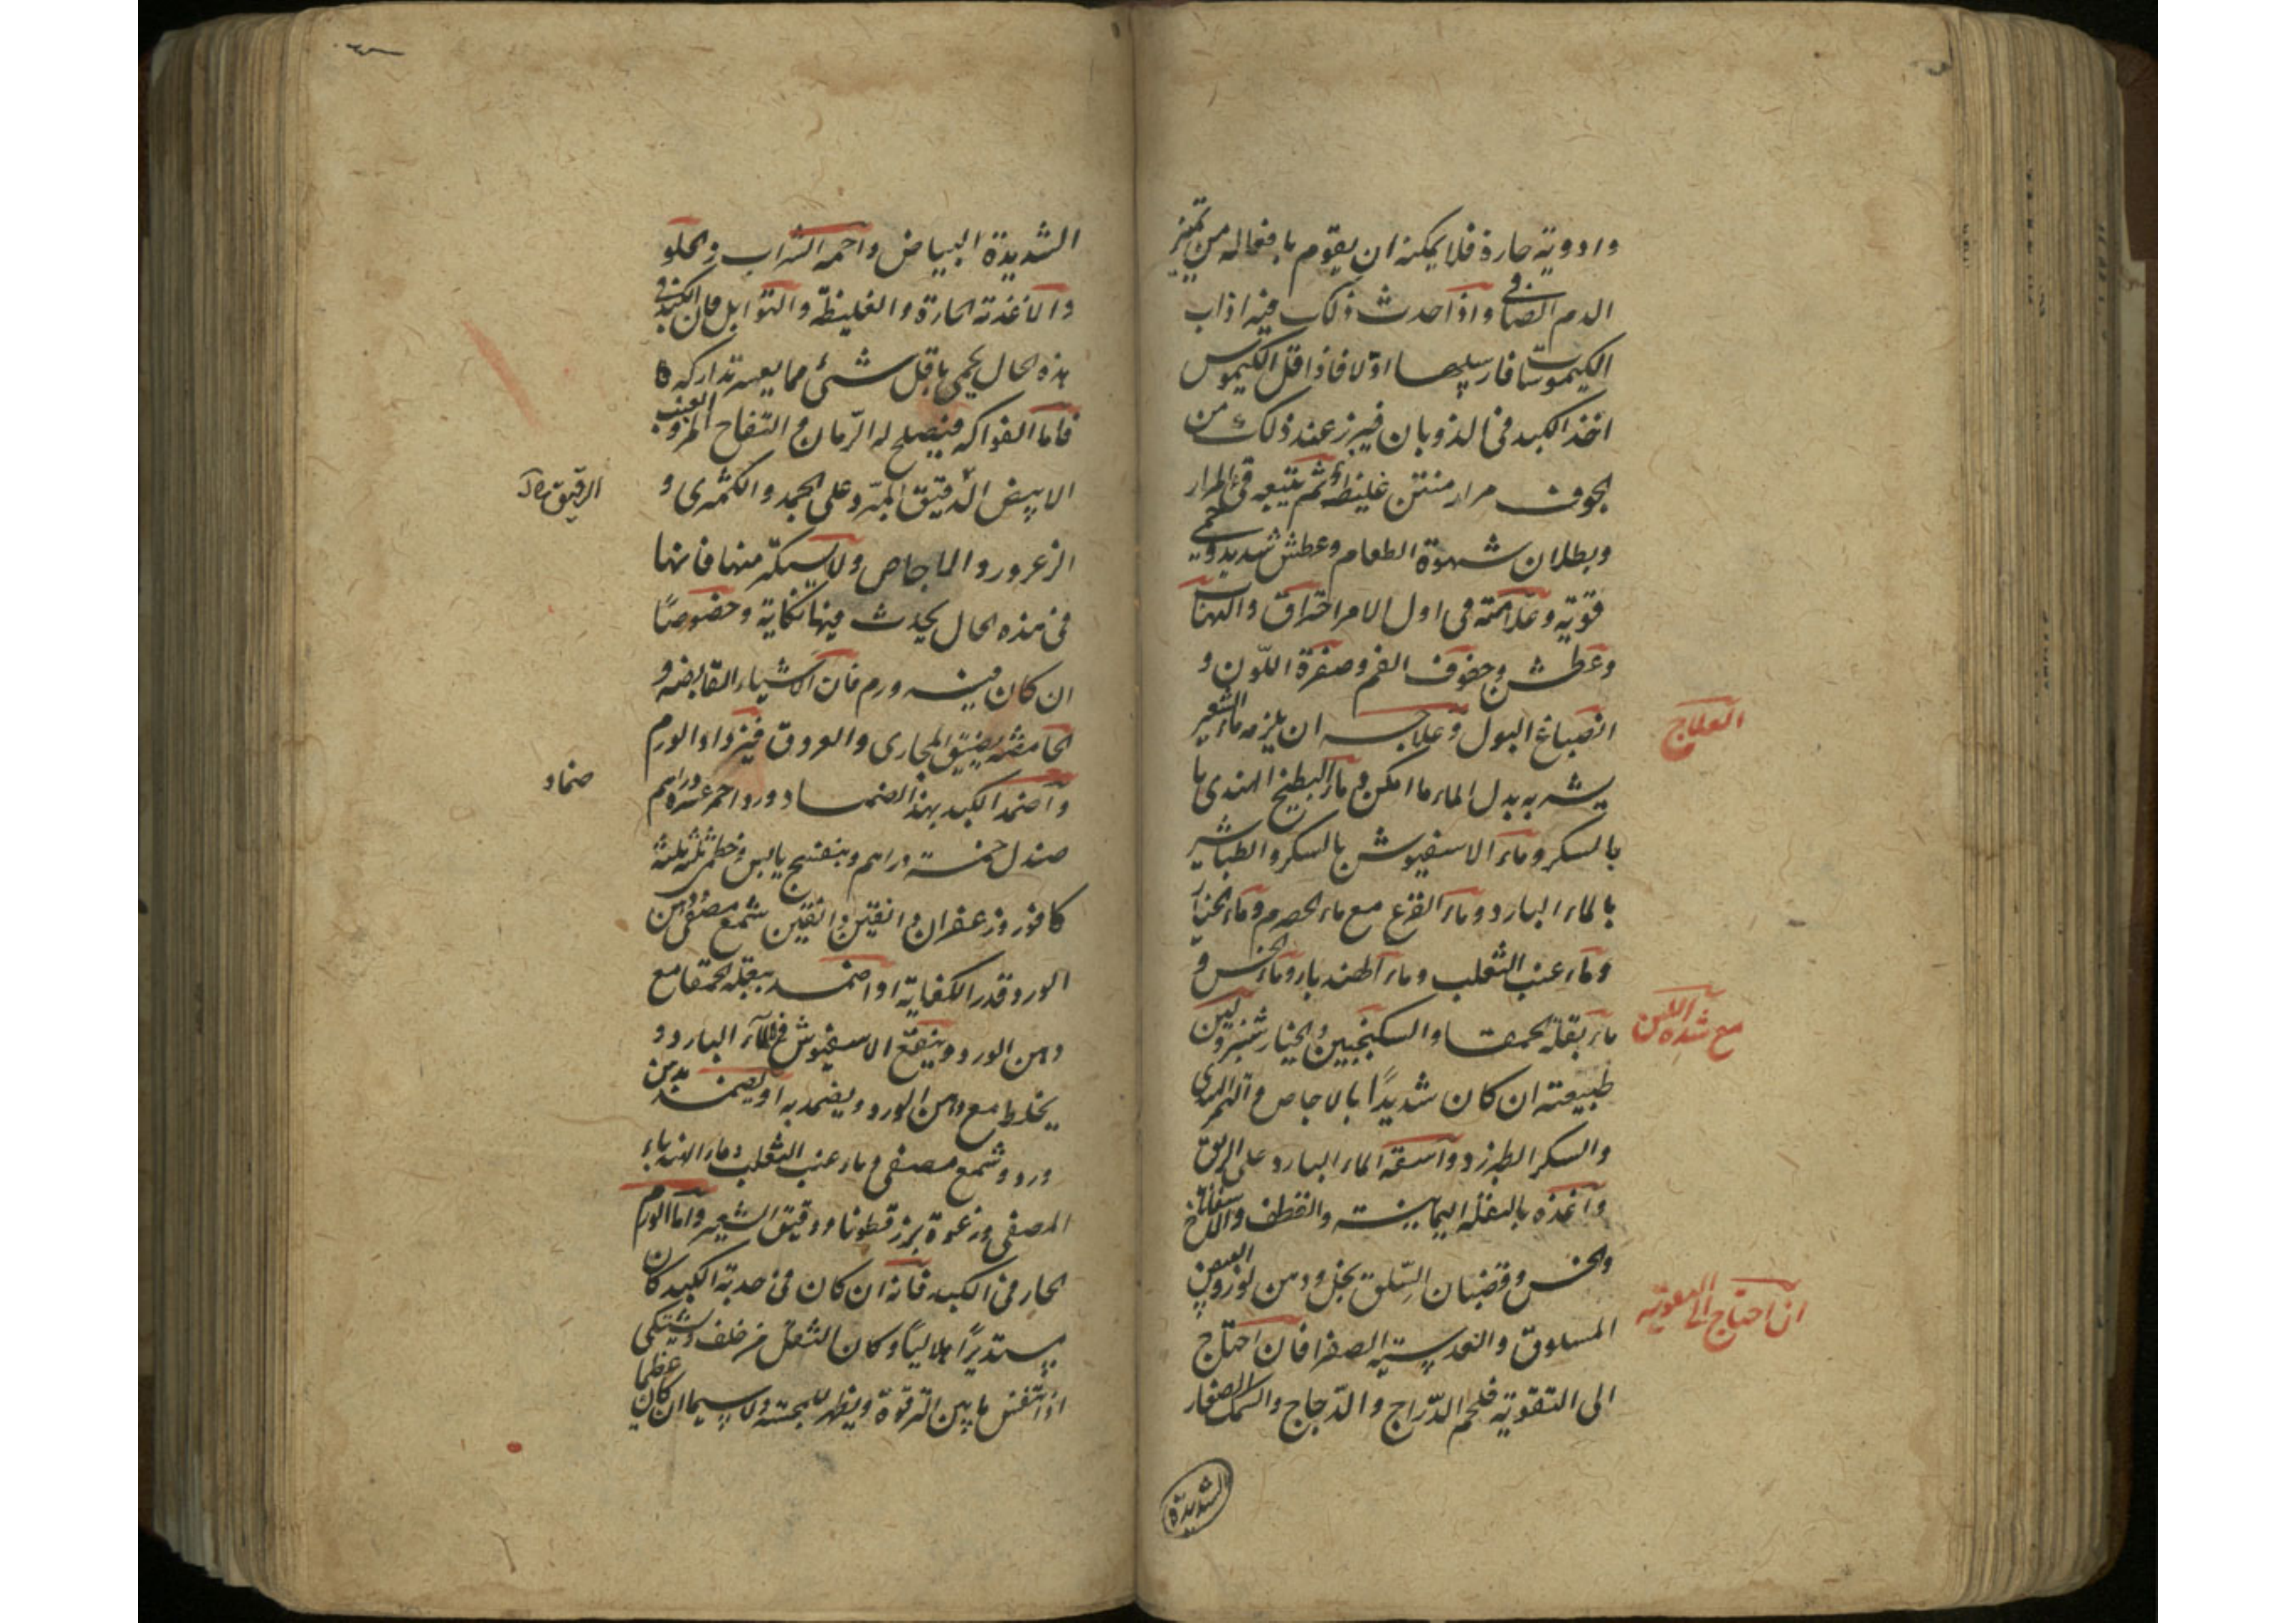 وادوية حارة فلا يمكنه ان يقوم بافعاله من تميز
الدم الصافي واذا حدث ذلك فيه اذاب
الكيموسات فارسلها اولا فاذا اقل الكيموس
اخذ الكبد في الذوبان فيبرز عند ذلك من
الجوف مرار منتن غليظ ثم يتبعه قئ المرار
وبطلان شهوة الطعام وعطش شديد وحمى
قوية وعلامته في اول الامر احتراق والتهاب
وعطش وجفوف الفم وصفرة اللون و
انصباغ البول وعلاجه ان يلزمه ماء الشعير
العلاج
يشربه بدل الماء ما امكن وماء البطيخ الهندي
بالسكر وماء الاسفيوش بالسكر والطباشير
بالماء البارد وماء القرع مع ماء الحصرم وماء الخيار
وماء عنب الثعلب وماء الهندبا وماء الخس و
ماء بقلة الحمقا والسكنجبين والخيار شنبر ولين
طبيعته ان كان شديدًا بالاجاص والتمر الهندي
والسكر الطبرزد واسقه الماء البارد على الريق
واغذه بالبقلة اليمانية والقطف والاسفاناخ
والخس وقضبان السلق بخل ودهن لوز وبيض
المسلوق والعدسية الصفرا فان احتاج
ان احتاج الى التقوية
الى التقوية فلحم الدراج والدجاج والسمك الصغار
الشديدة
الشديدة البياض واحمه الشراب والحلو
والاغذية الحارة والغليظة والتوابل فان الكبد في
هذه الحال يحمى باقل شئ مما يعسر تداركه
فاما الفواكه فيصلح له الرمان والتفاح المز والعنب
الابيض الدقيق المبرد على الجمد والكمثرى و
الرقيق
الزعرور والاجاص ولا يستكثر منها فانها
في هذه الحال يحدث فيها نكاية وخصوصًا
ان كان فيه ورم فان الاشياء القابضة و
الحامضة يضيق المجاري والعروق فيزداد الورم
واضمد الكبد بهذا الضماد ورد احمر عشرة دراهم
ضماد
صندل خمسة دراهم وبنفسج يابس وخطمى ثلثة ثلثة
كافور وزعفران دانقين دانقين شمع مصفى ودهن
الورد قدر الكفاية او اضمده ببقلة الحمقا مع
دهن الورد وينقع الاسفيوش في الماء البارد و
يخلط مع دهن الورد ويضمد به او يضمد بدهن
ورد وشمع مصفى وماء عنب الثعلب وماء الهندباء
المصفى ورغوة بزر قطونا ودقيق الشعير واما الورم
الحار في الكبد فانه ان كان في حدبة الكبد كان
مستديرًا هلاليًا وكان الثقل من خلف ويشتكى
اذا تنفس ما بين الترقوة ويظهر للمجسة ولا سيما ان كان عظيما